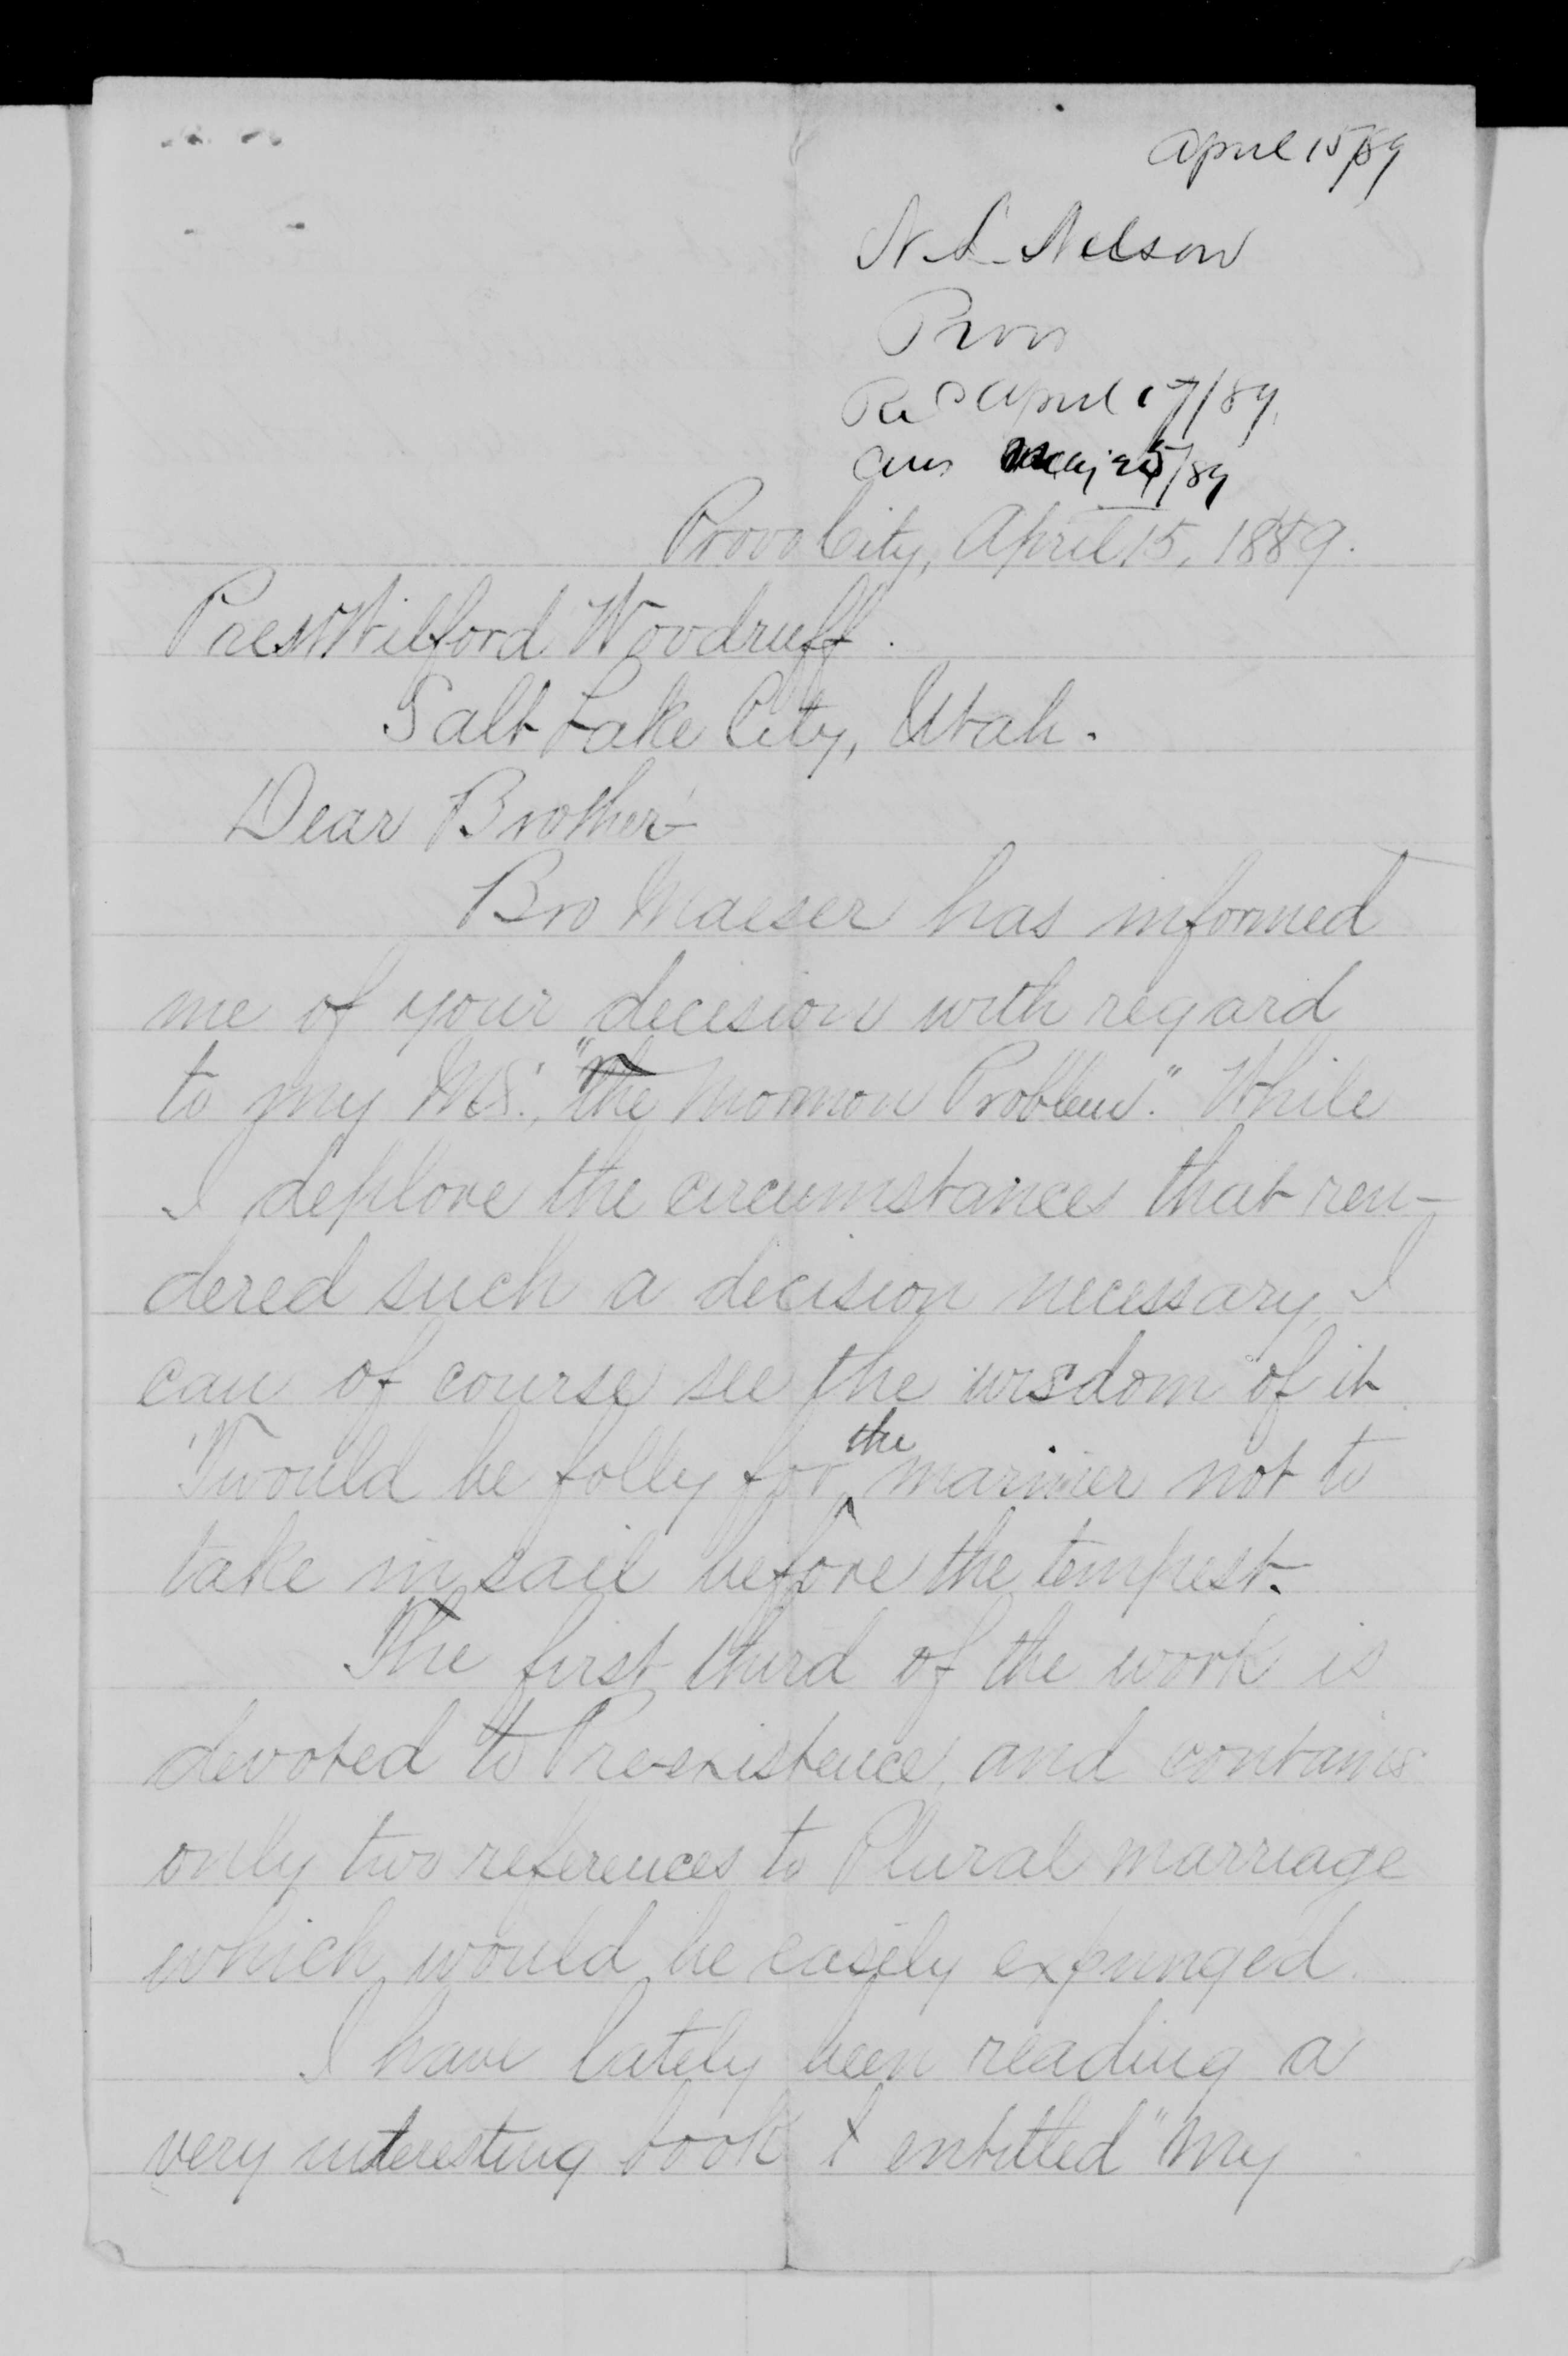 April 15/89
N. L. Nelson
Provo
Rec April 17/89.
Ans May 25/89
Provo City, April 15, 1889.
Prest Wilford Woodruff.
Salt Lake City, Utah.
Dear Brother:
Bro Maeser has informed
me of your decision with regard
to my MS., "The Mormon Problem." While
I deplore the circumstances that ren-
dered such a decision necessary, I
can of course see the wisdom of it.
'Twould be folly for the mariner not to
take in sail before the tempest.
The first third of the work is
devoted to Pre-existence, and contains
only two references to Plural marriage
which would be easily expunged.
I have lately been reading a
very interesting book entitled "My